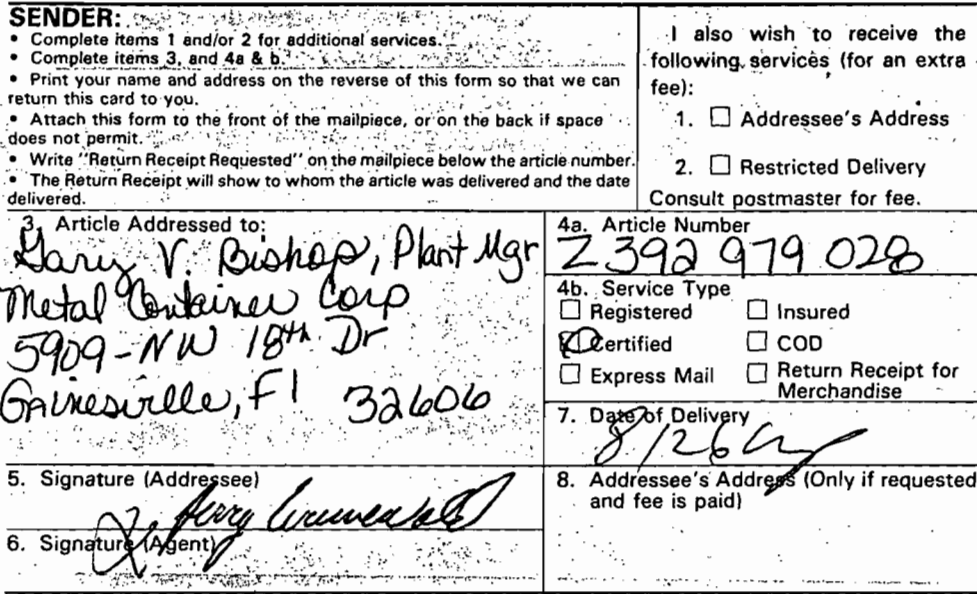 SENDER:
• Complete items 1 and/or 2 for additional services.
• Complete items 3, and 4a & b.
• Print your name and address on the reverse of this form so that we can
return this card to you.
• Attach this form to the front of the mailpiece, or on the back if space
does not permit.
• Write "Return Receipt Requested" on the mailpiece below the article number.
• The Return Receipt will show to whom the article was delivered and the date
delivered.
I also wish to receive the
following services (for an extra
fee):
1. ☐ Addressee's Address
2. ☐ Restricted Delivery
Consult postmaster for fee.
3. Article Addressed to:
Gary V. Bishop, Plant Mgr
Metal Container Corp
5909-NW 18th Dr
Gainesville, Fl 32606
4a. Article Number
Z 392 979 028
4b. Service Type
☐ Registered ☐ Insured
Certified ☐ COD
☐ Express Mail ☐ Return Receipt for
Merchandise
7. Date of Delivery
8/26
5. Signature (Addressee)
6. Signature (Agent)
8. Addressee's Address (Only if requested
and fee is paid)